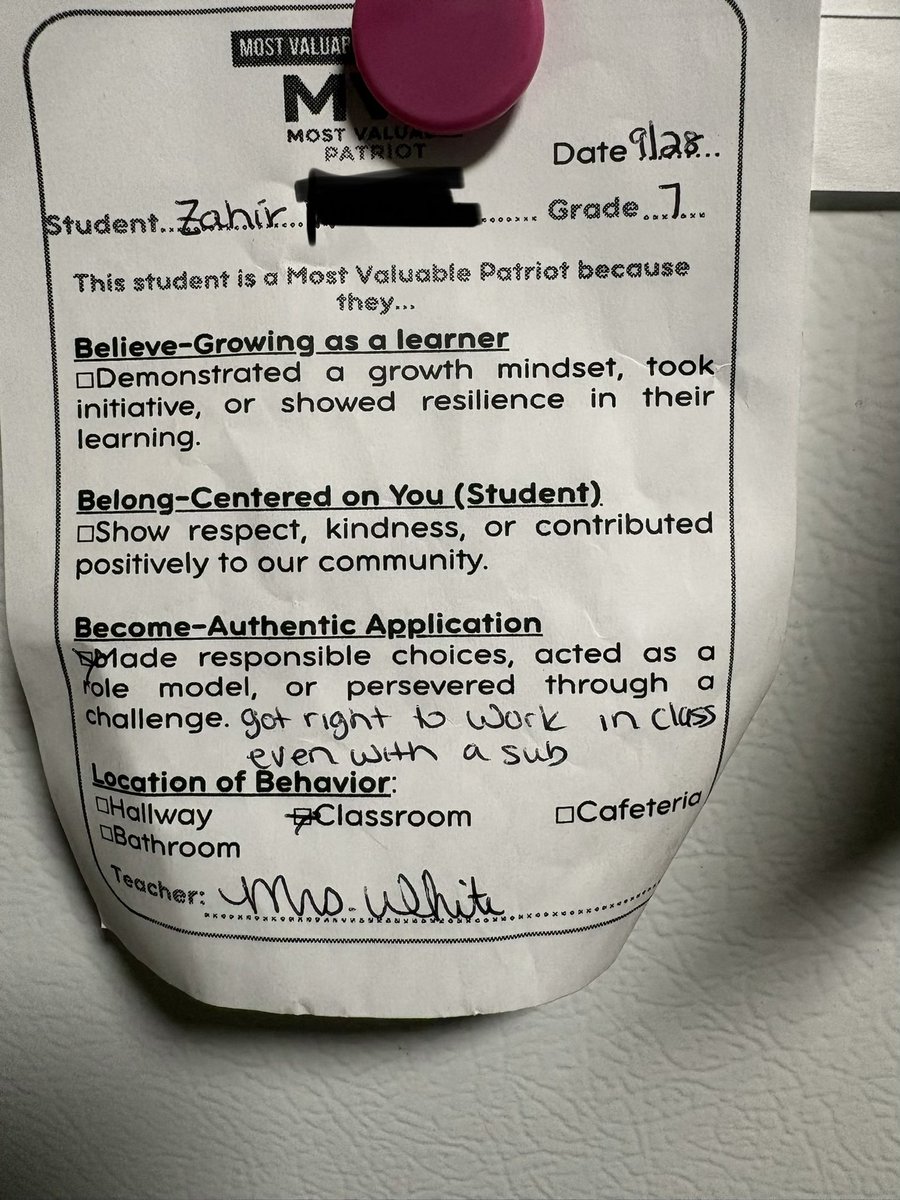 MOST VALUAB
M
MOST VALUA
PATRIOT
Date 9/28
Student Zahir Grade 7
This student is a Most Valuable Patriot because
they...
Believe-Growing as a learner
□Demonstrated a growth mindset, took
initiative, or showed resilience in their
learning.
Belong-Centered on You (Student)
□Show respect, kindness, or contributed
positively to our community.
Become-Authentic Application
☑Made responsible choices, acted as a
role model, or persevered through a
challenge. got right to work in class
even with a sub
Location of Behavior:
□Hallway ☑Classroom □Cafeteria
□Bathroom
Teacher: Mrs. White